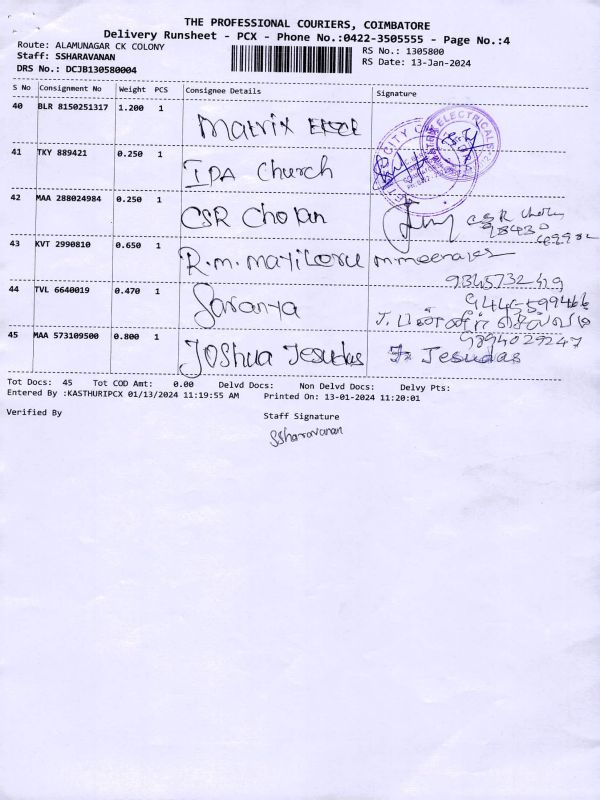 THE PROFESSIONAL COURIERS, COIMBATORE
Delivery Runsheet - PCX - Phone No.:0422-3505555 - Page No.:4
Route: ALAMUNAGAR CK COLONY
RS No.: 1305800
Staff: SSHARAVANAN
RS Date: 13-Jan-2024
DRS No.: DCJB130580004
S No Consignment No Weight PCS Consignee Details Signature
40 BLR 8150251317 1.200 1 Matrix
ELECTRICALS
CITY
41 TKY 889421 0.250 1 IPA Church
42 MAA 288024984 0.250 1 CSR Cholan
CSR
43 KVT 2990810 0.650 1 R.m. m.meena
44 TVL 6640019 0.470 1 Saranya
9345732419
J.
9894029247
45 MAA 573109500 0.800 1 Joshua Jesudas Jesudas
Tot Docs: 45 Tot COD Amt: 0.00 Delvd Docs: Non Delvd Docs: Delvy Pts:
Entered By :KASTHURIPCX 01/13/2024 11:19:55 AM Printed On: 13-01-2024 11:20:01
Verified By Staff Signature
SSharavanan